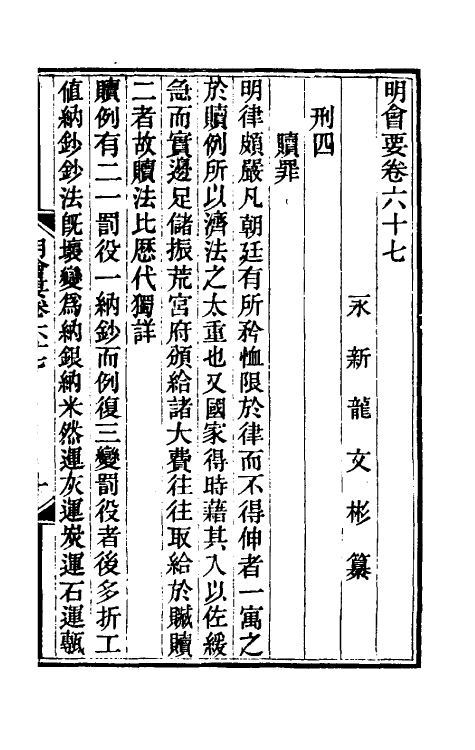 明會要卷六十七
永新龍文彬纂
刑四
贖罪
明律頗嚴凡朝廷有所矜恤限於律而不得伸者一寓之
於贖例所以濟法之太重也又國家得時藉其入以佐緩
急而實邊足儲振荒宮府頒給諸大費往往取給於贓贖
二者故贖法比歷代獨詳
贖例有二一罰役一納鈔而例復三變罰役者後多折工
值納鈔鈔法旣壞變爲納銀納米然運灰運炭運石運甎
明會要卷六十七